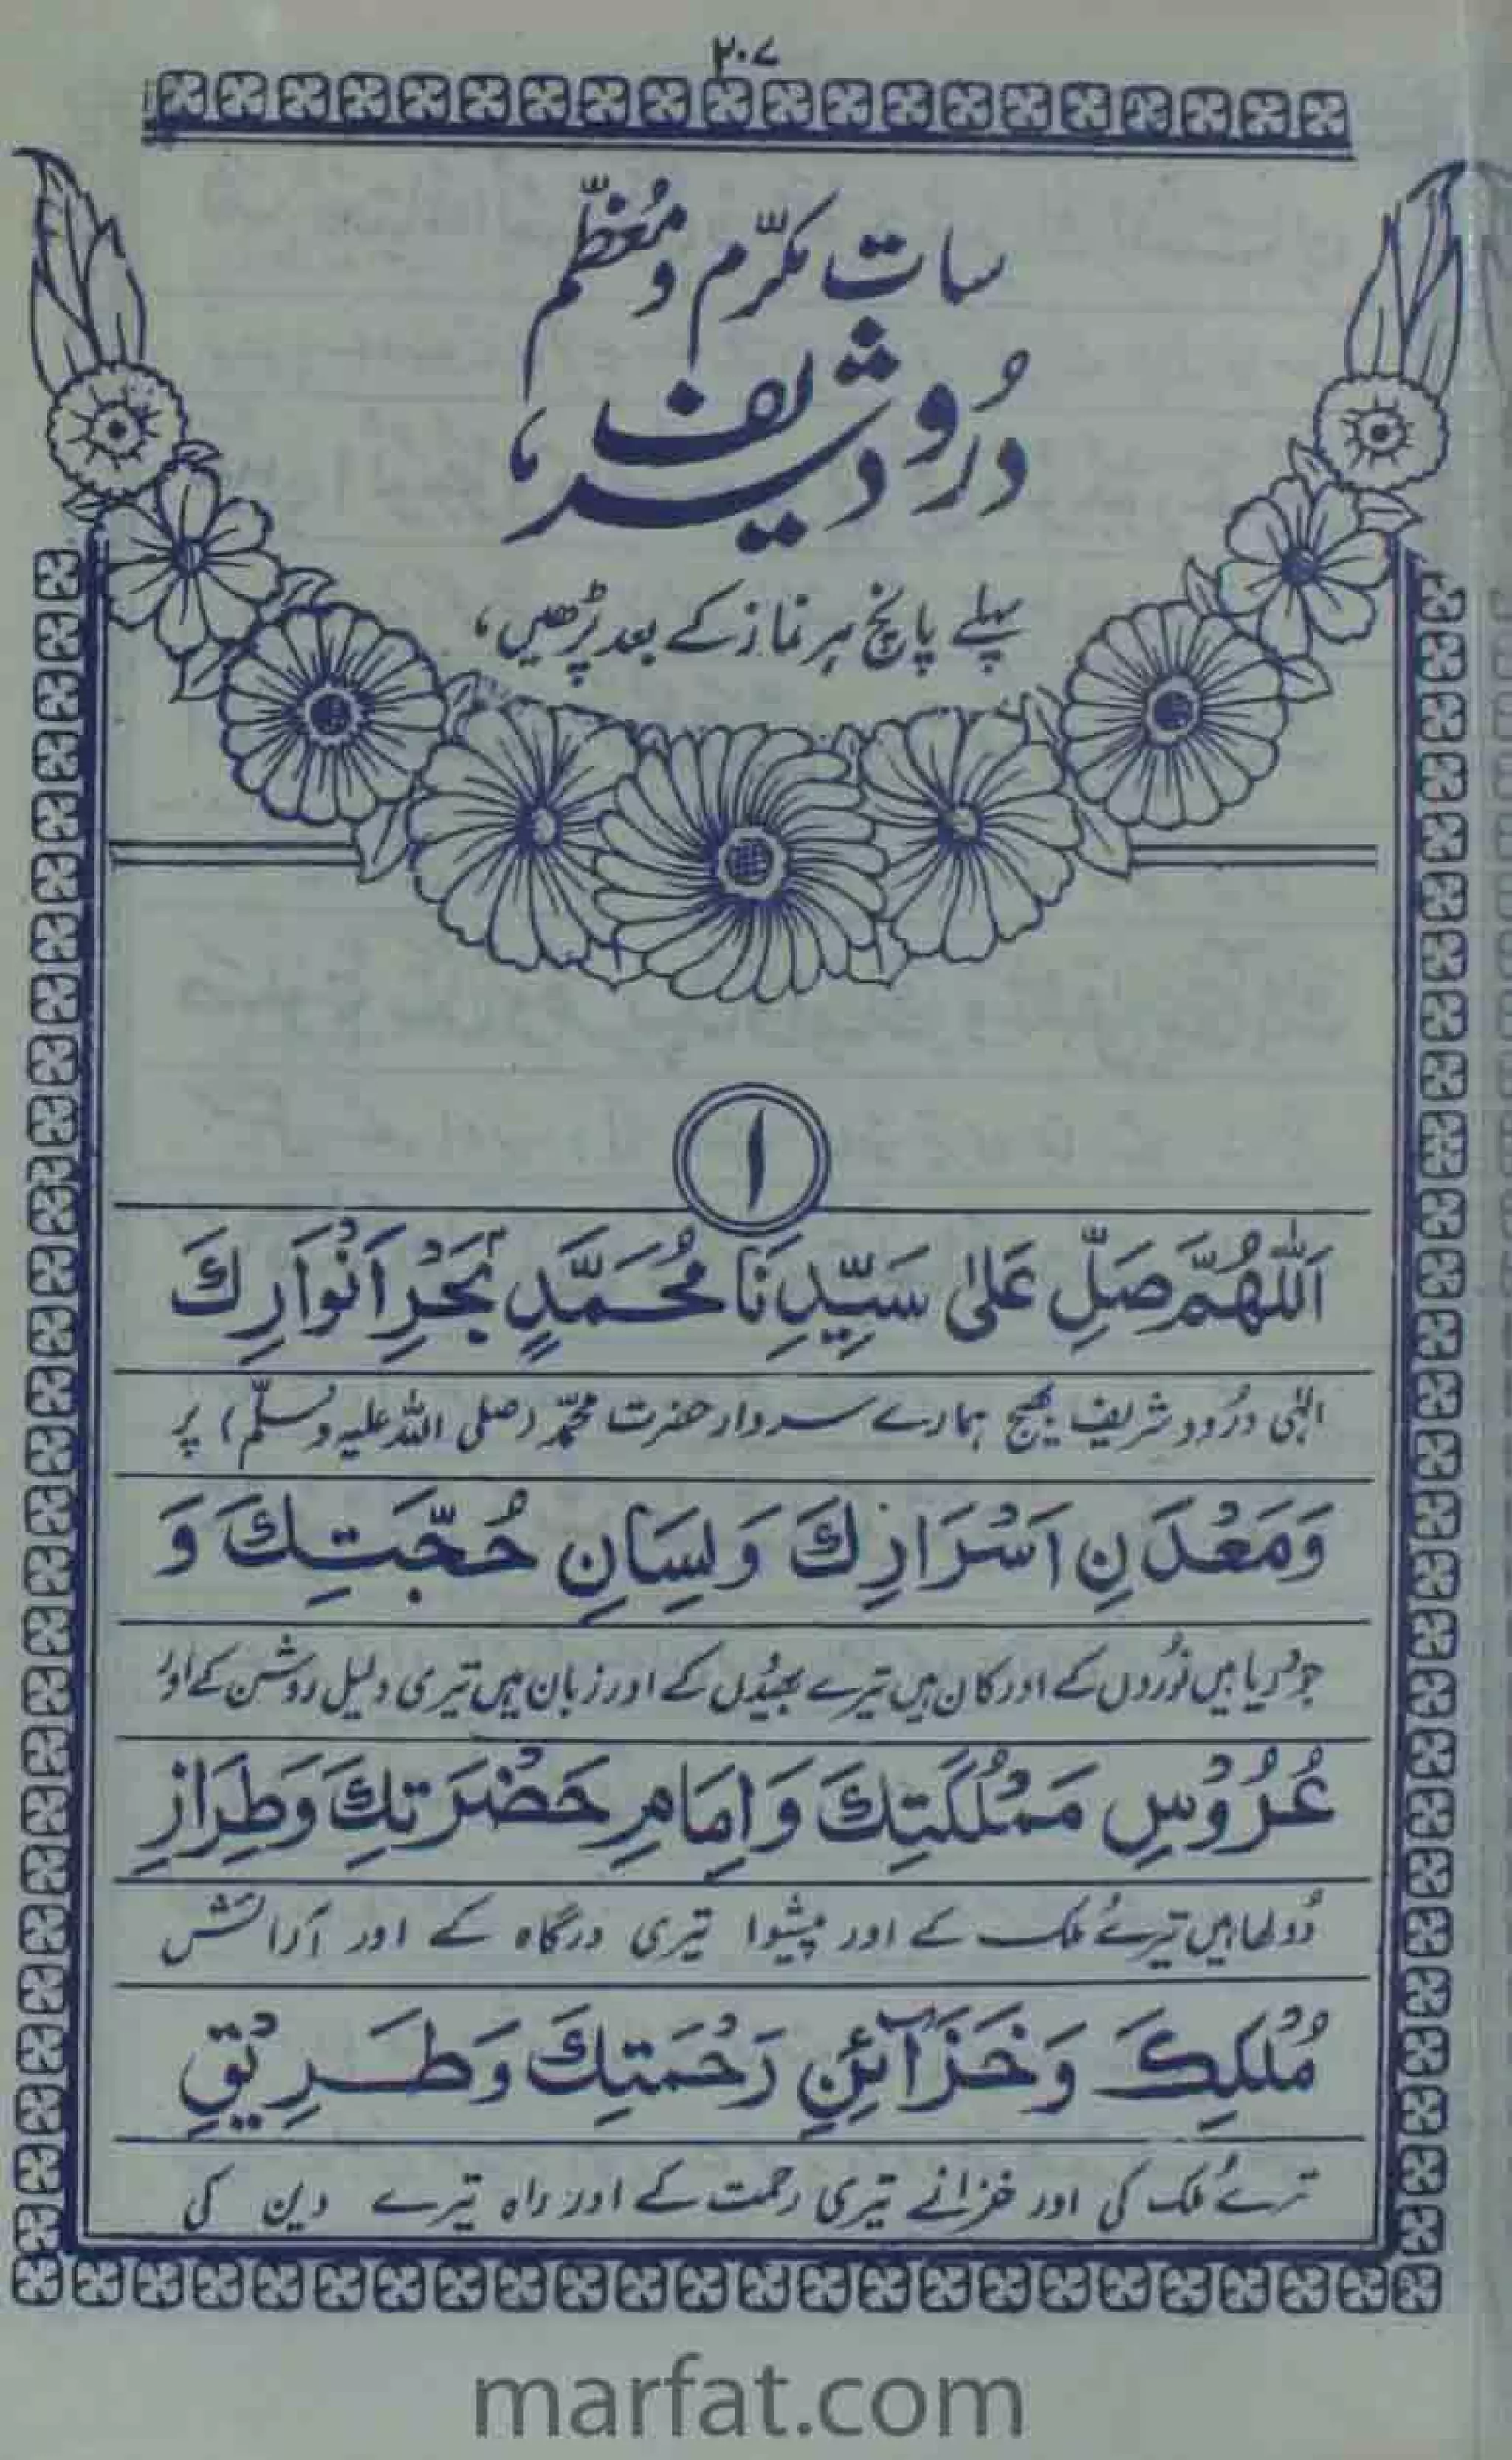 ۲۰۷
سات مکرّم و معظّم
دُرود شریف،
پہلے پانچ ہر نماز کے بعد پڑھیں،
۱
اَللّٰهُمَّ صَلِّ عَلٰى سَيِّدِنَا مُحَمَّدٍ بَحْرِ اَنْوَارِكَ
الٰہی درُود شریف بھیج ہمارے سردار حضرت محمّد (صلی اللہ علیہ وسلّم) پر
وَمَعْدَنِ اَسْرَارِكَ وَلِسَانِ حُجَّتِكَ وَ
جو دریا ہیں نُوروں کے اور کان ہیں تیرے بھیدُں کے اور زبان ہیں تیری دلیل روشن کے اور
عُرُوْسِ مَمْلُكَتِكَ وَاِمَامِ حَضْرَتِكَ وَطِرَازِ
دُولھا ہیں تیرے ملک کے اور پیشوا تیری درگاہ کے اور آرائش
مُلْكِكَ وَخَزَآئِنِ رَحْمَتِكَ وَطَرِيْقِ
ترے ملک کی اور خزانے تیری رحمت کے اور راہ تیرے دین کی
marfat.com